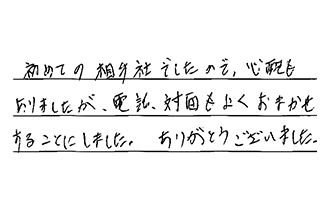 初めての相手社でしたので、心配も
ありましたが、電話、対面もよくおまかせ
することにしました。 ありがとうございました。